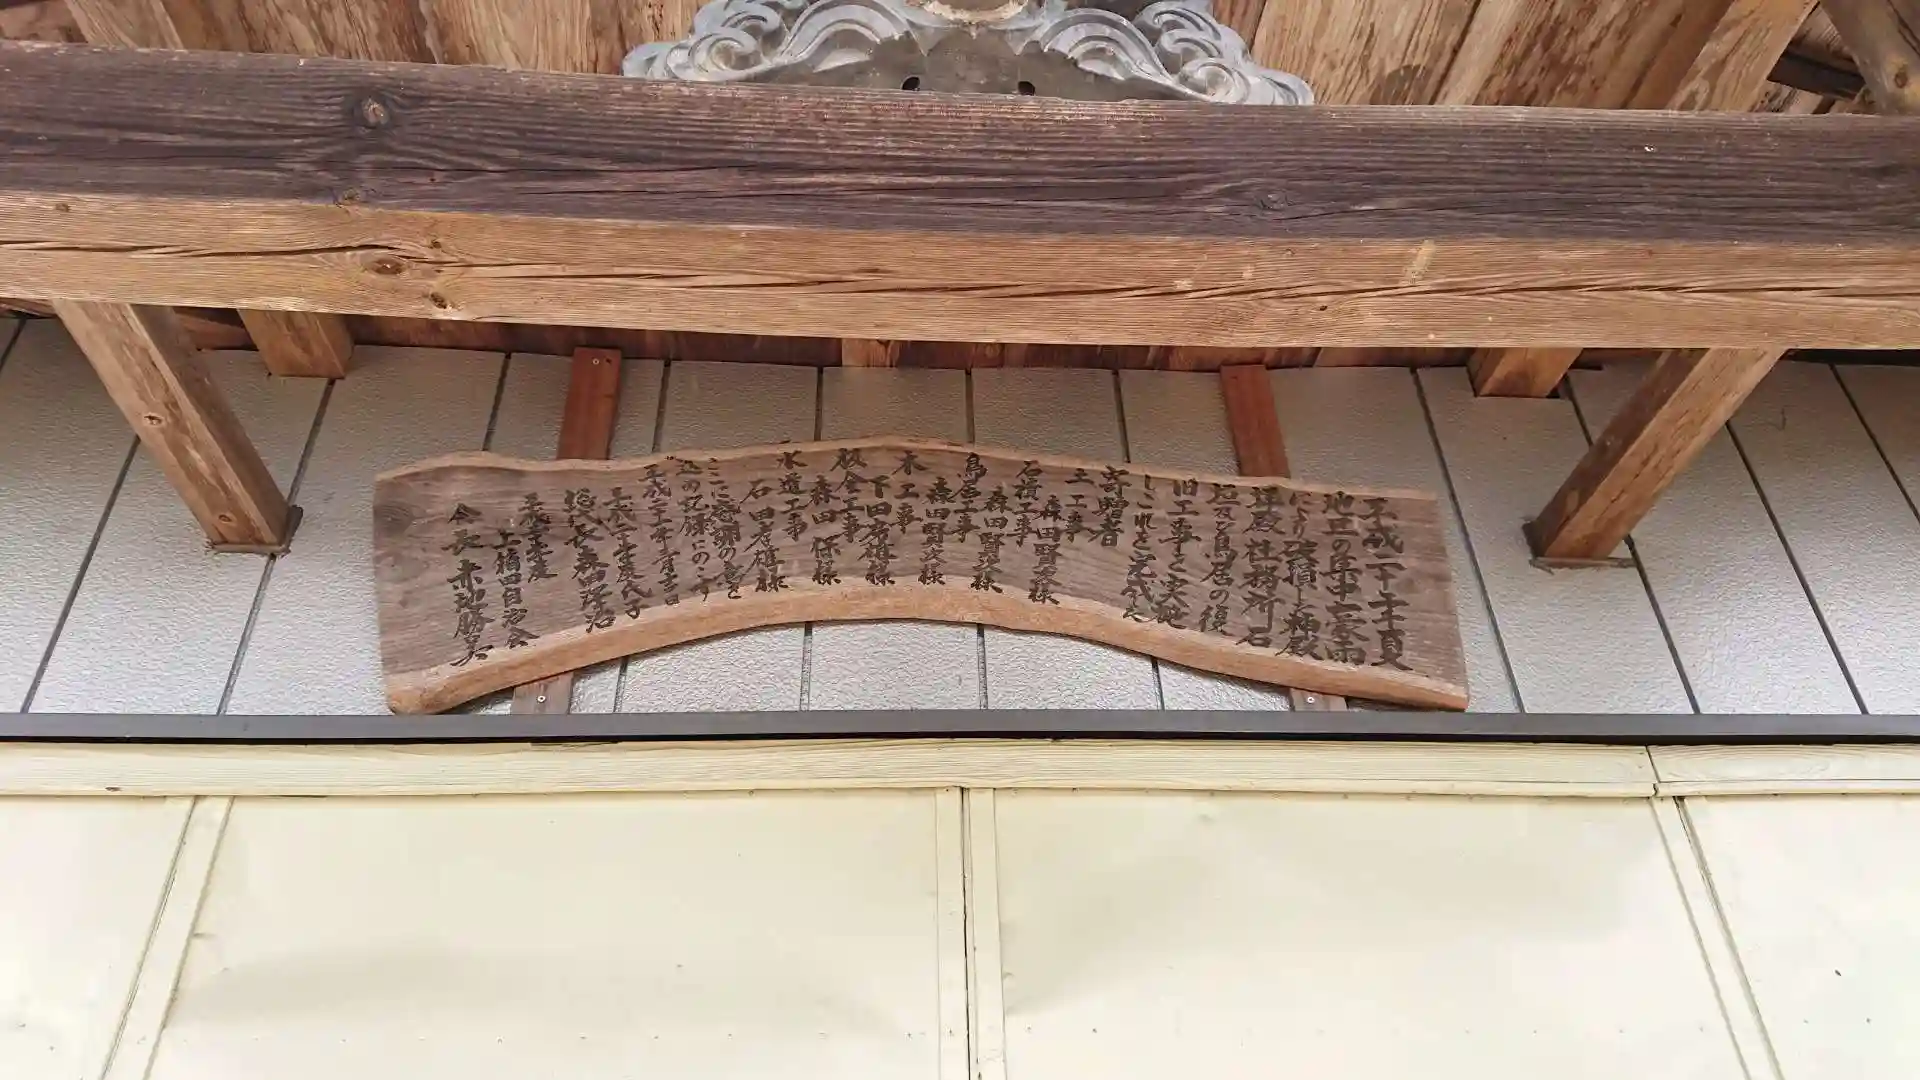 平成二十年夏
地区の集中豪雨
により破損した神殿
拝殿社務所石
垣及び鳥居の復
旧工事を実施
しこれを完成た
寄贈者
土工事
石積工事
森田賢次様
鳥居工事
森田賢次様
木工事
森田賢次様
下田秀雄様
板金工事
森田保様
水道工事
石田孝雄様
ここに感謝の意を
込め記録にのこす
平成二十一年
総代長森田澤治
上稲田自治会
会長赤地勝美